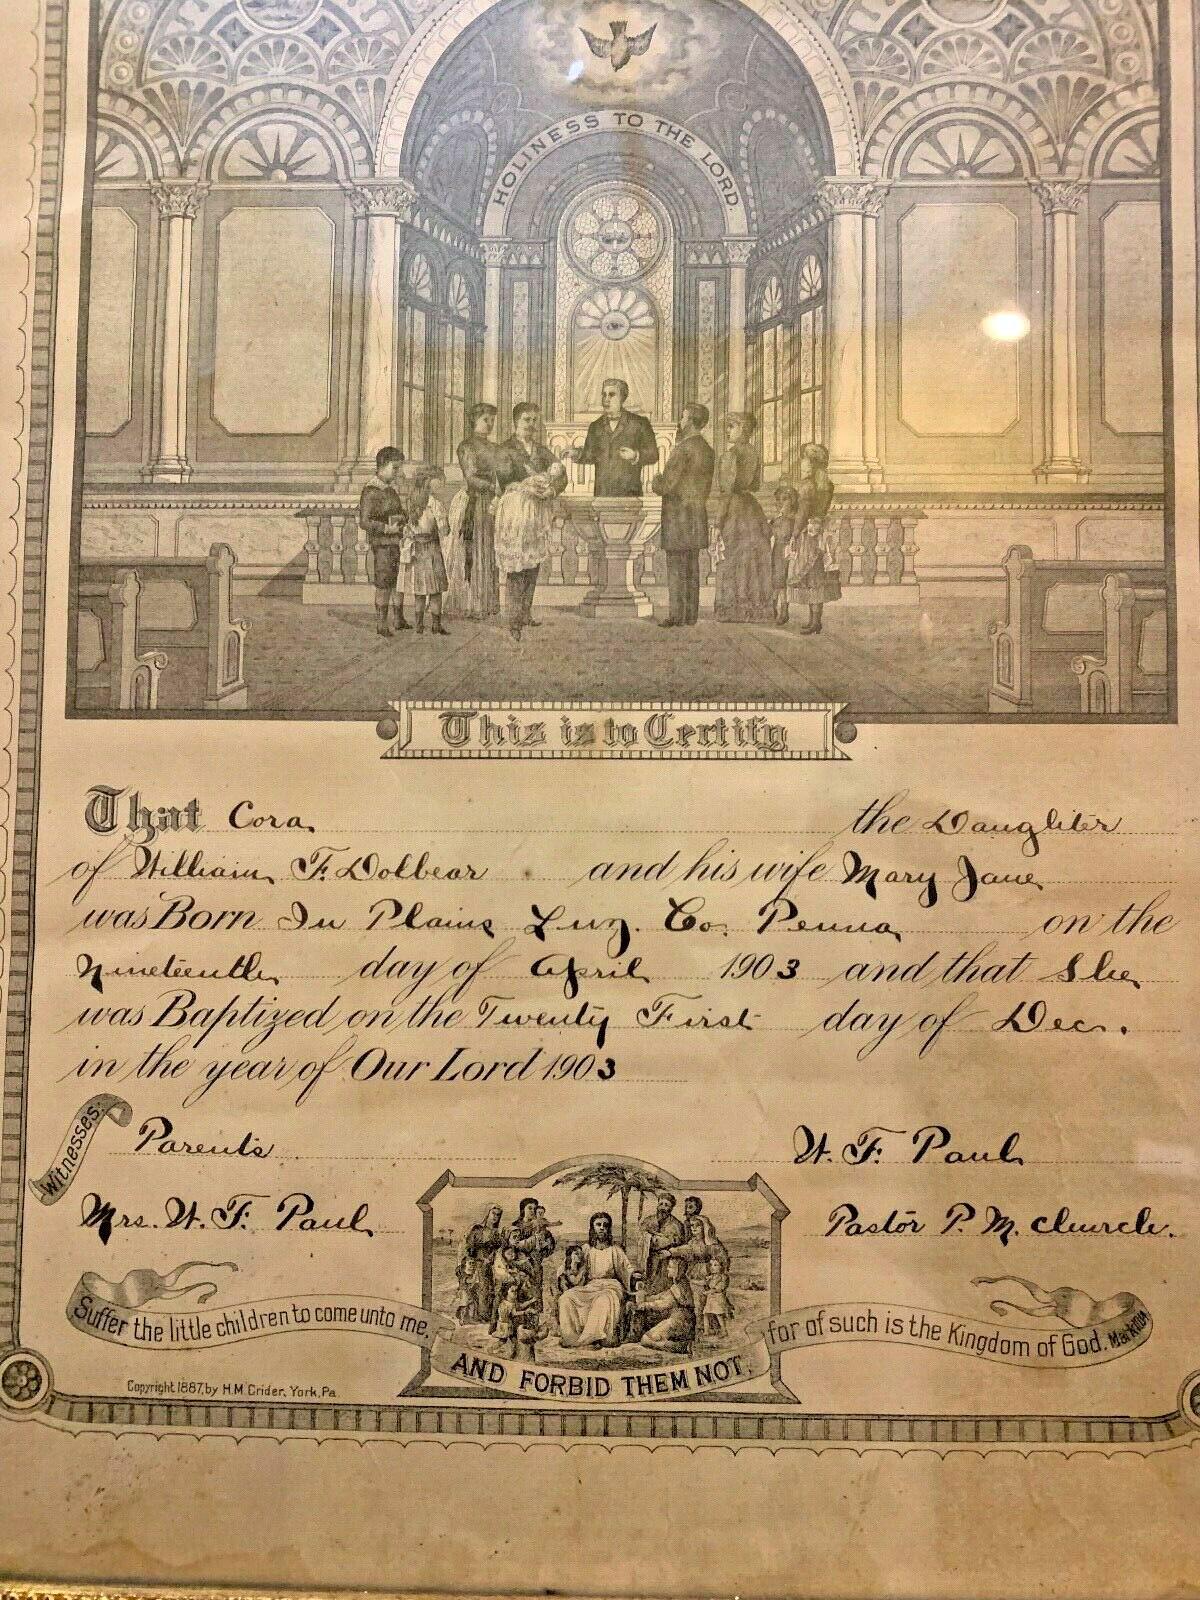 HOLINESS TO THE LORD.
This is to Certify
That Cora the Daughter
of William F. Dolbear and his wife Mary Jane
was Born In Plains Luz. Co. Penna on the
Nineteenth day of April 1903 and that She
was Baptized on the Twenty First day of Dec.
in the year of Our Lord 1903
Witnesses:
Parents W. F. Paul
Mrs. W. F. Paul Pastor P. M. Church.
Suffer the little children to come unto me,
AND FORBID THEM NOT,
for of such is the Kingdom of God. Mark 10.14
Copyright 1887, by H.M. Crider, York, Pa.